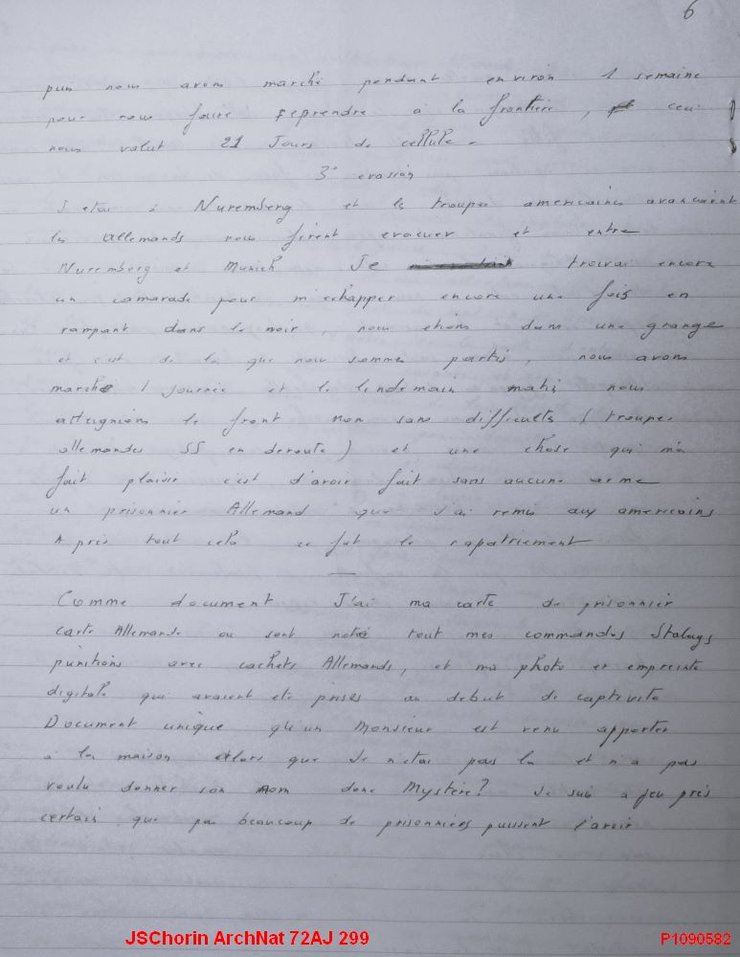 6
puis nous avons marché pendant environ 1 semaine
pour nous faire reprendre à la frontière, ceci
nous valut 21 Jours de cellule.
3° evasion
J etai à Nuremberg et les troupes americaines avancaient
les allemands nous firent evacuer et entre
Nuremberg et Munich Je trouvai encore
un camarade pour m'echapper encore une fois en
rampant dans le noir, nous etions dans une grange
et c'est de la que nous somme partis, nous avons
marché 1 journée et le lendemain matin nous
atteignions le front non sans difficults (troupes
allemandes SS en deroute) et une chose qui m'a
fait plaisir c'est d'avoir fait sans aucune arme
un prisonnier Allemand que j'ai remis aux americains
Après tout cela ce fut le rapatriement
Comme document J'ai ma carte de prisonnier
carte Allemande ou sont notés tout mes commandos Stalags
punitions avec cachets Allemands, et ma photo et empreinte
digitale qui avaient eté prises au debut de captivite
Document unique qu'un Monsieur est venu apporter
à la maison alors que Je n'etai pas la et n'a pas
voulu donner son nom donc Mystère? Je suis a peu près
certain que pas beaucoup de prisonniers puissent l'avoir
JSChorin ArchNat 72AJ 299
P1090582